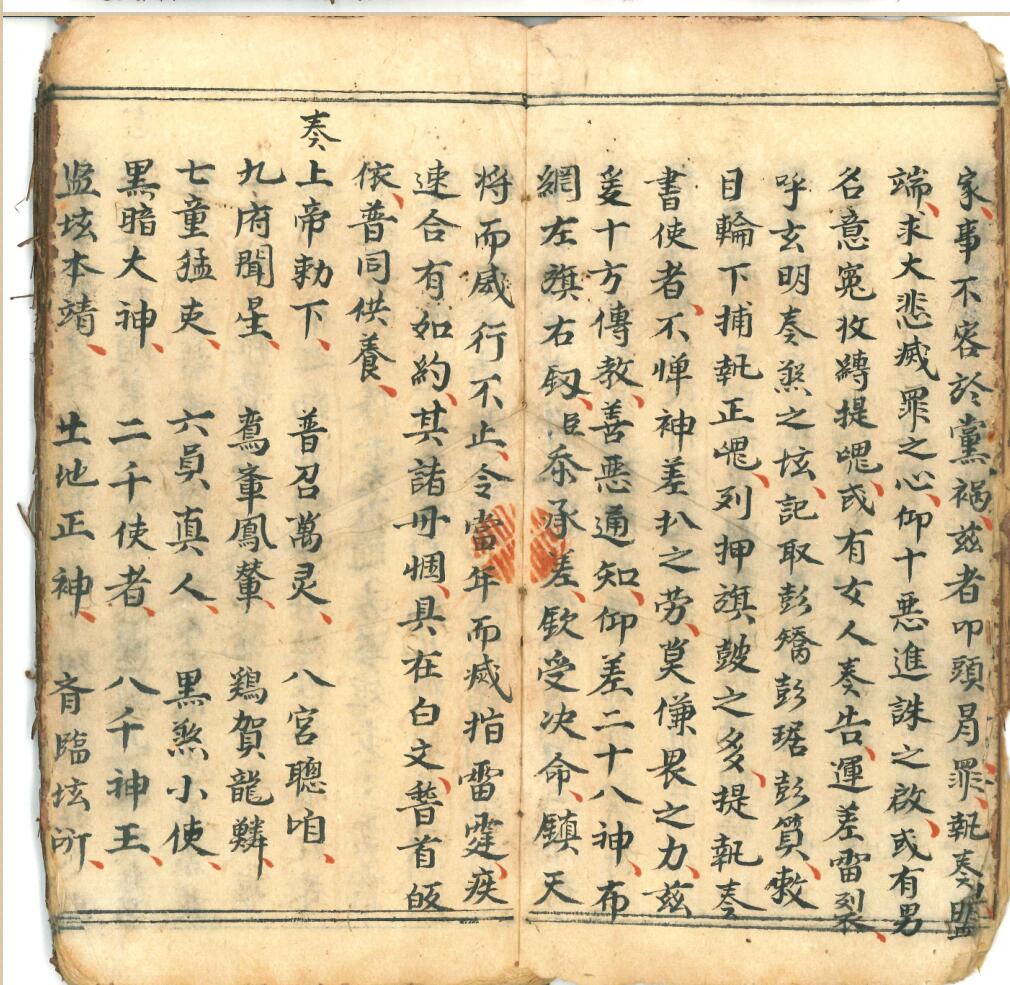 家事不容於黨禍茲者叩頭冐罪執奏盟
端求大悲滅罪之心仰十惡進誅之啟或有男
名意寃收縛提䰟或有女人奏告運差雷裂
呼玄明奏煞之坛記取彭矯彭琚彭質敕
目輪下捕執正䰟列押旗皷之多提執奏
書使者不惮神差扒之劳莫傔畏之力茲
爰十方傳教善惡通知仰差二十八神布
網左旗右釼臣忝承差欽受决命鎮天
将而威行不止令當年而滅指雷霆疾
速合有如約其諸丹悃具在白文䭫首皈
依普同供養
奏
上帝勅下 普召萬灵 八宮聰咱
九府聞星 鸞軬鳳輦 鷄賀龍鱗
七童猛吏 六員真人 黑煞小使
黑暗大神 二千使者 八千神王
监坛本靖 土地正神 斉臨坛所